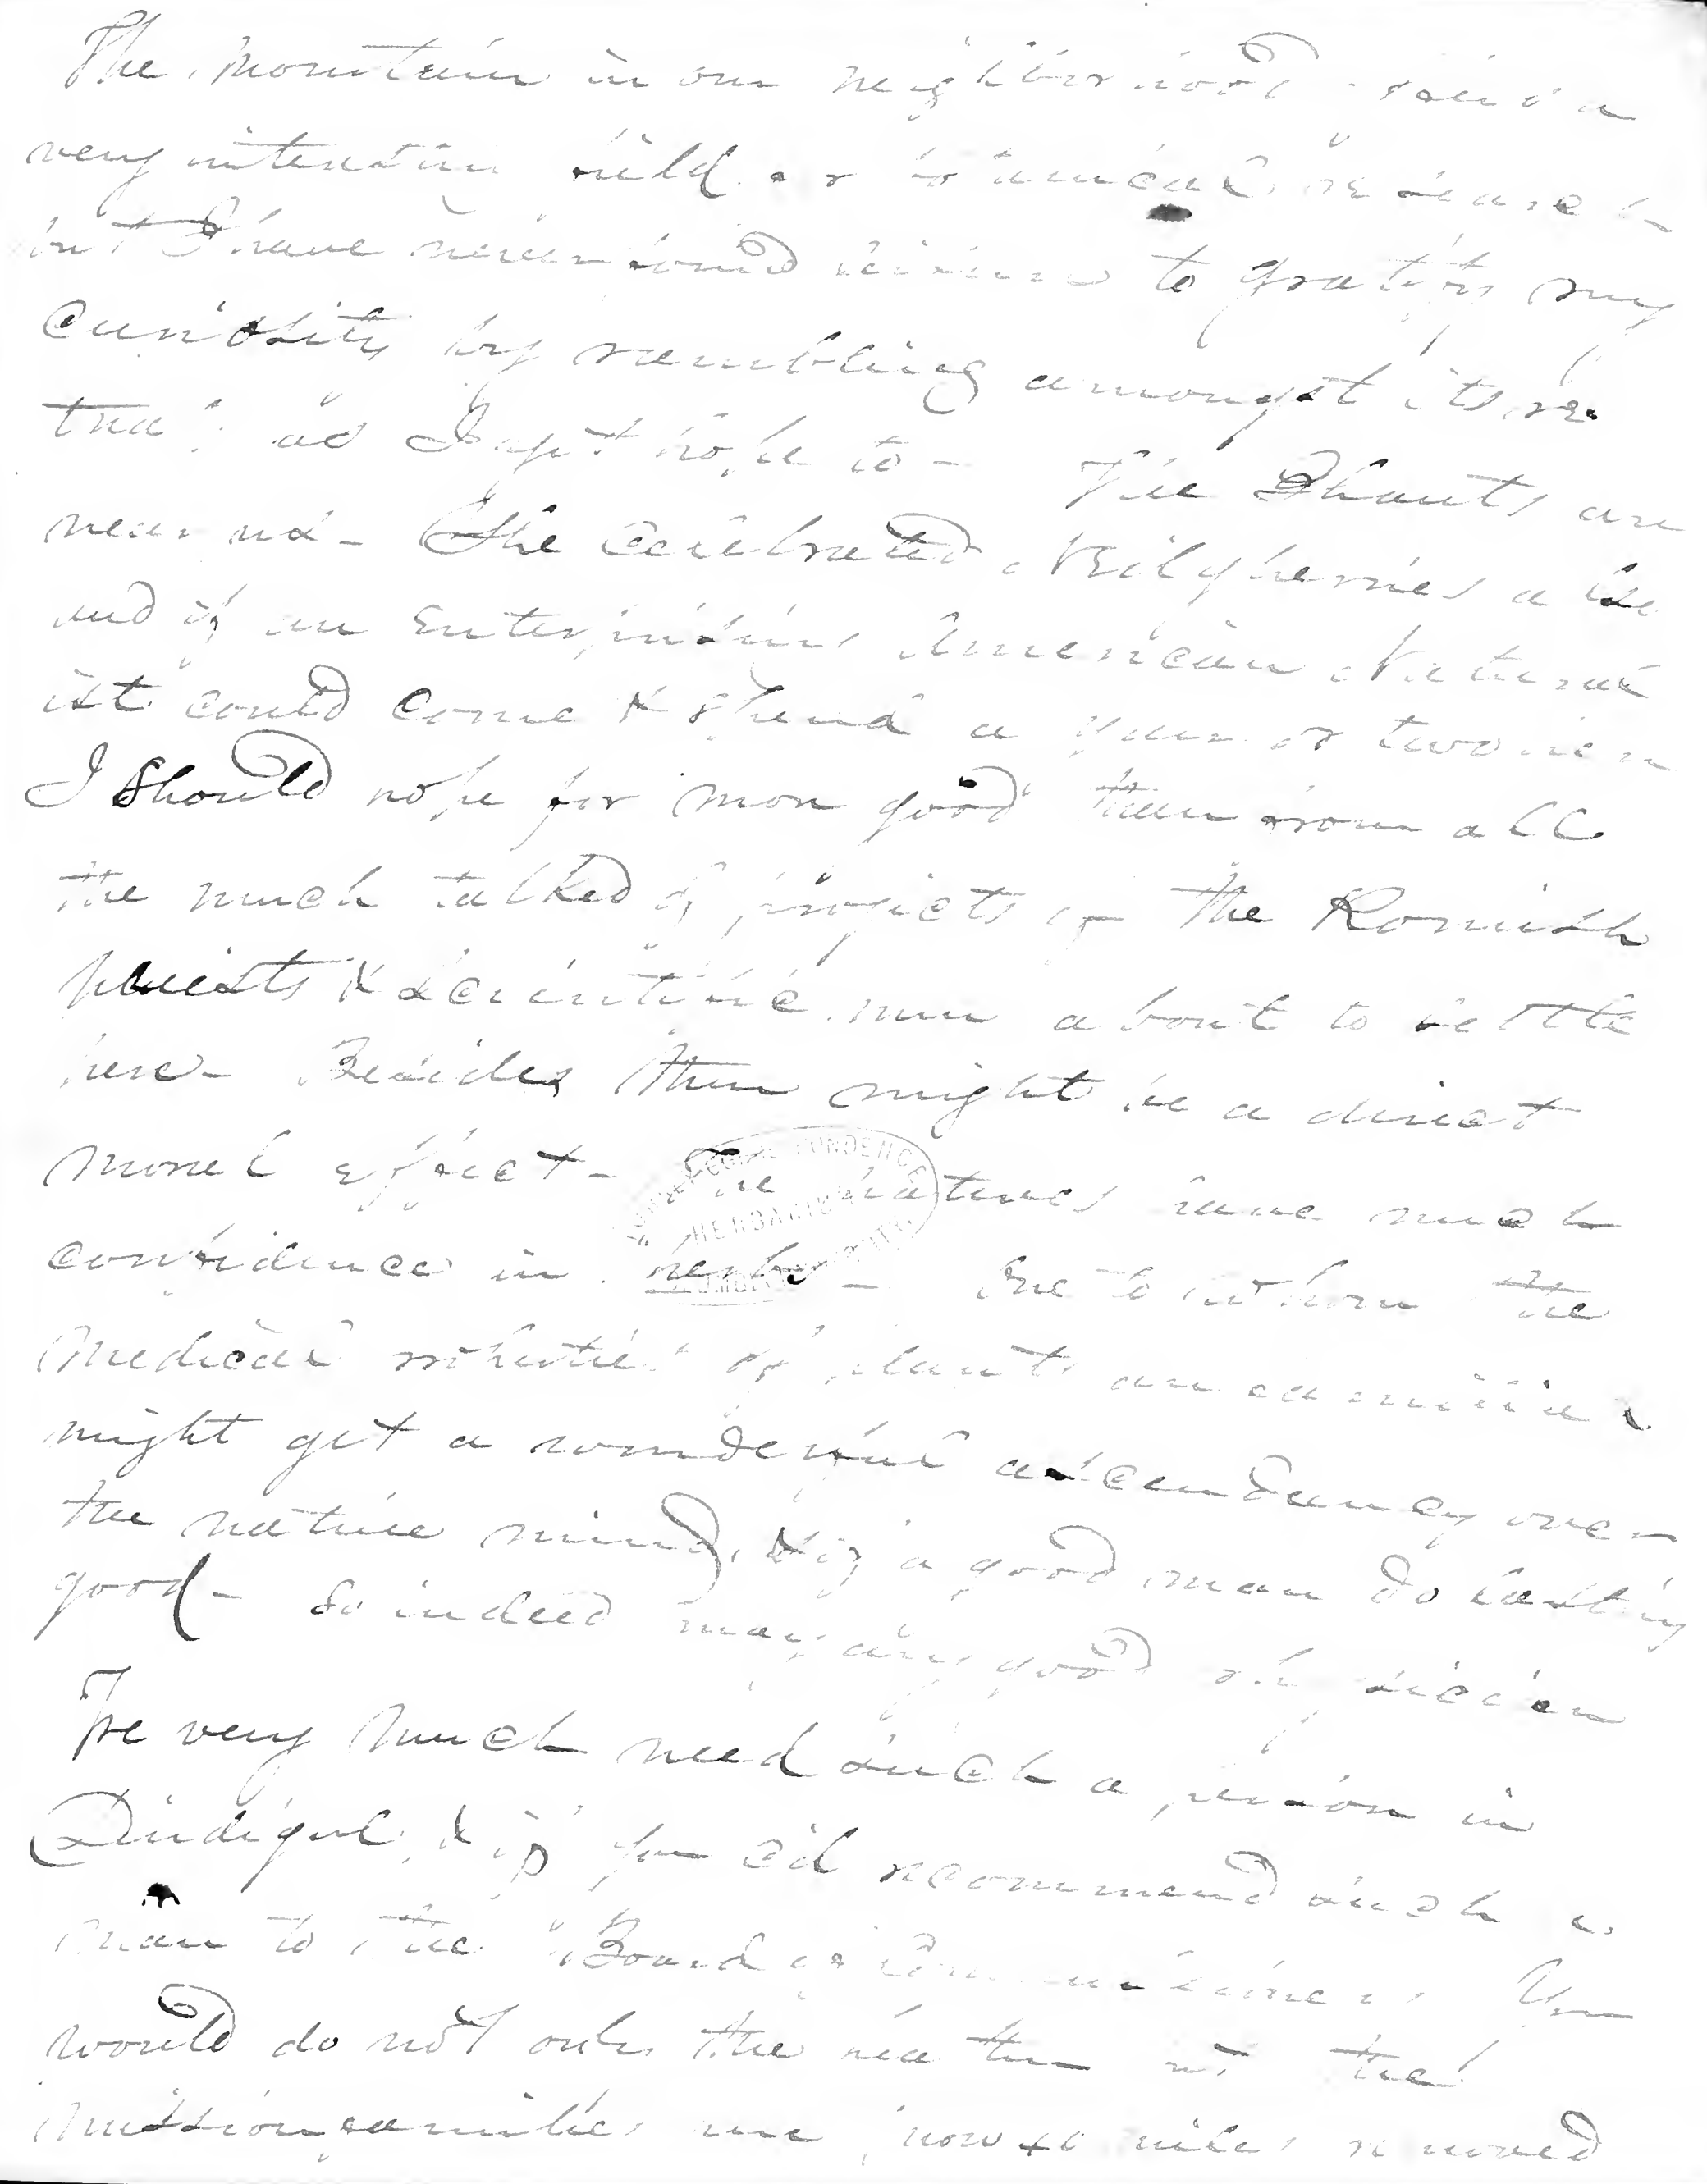 The mountain in our neighborhood yield a
very interesting field for botanical research
but I have never found leisure to gratify my
curiosity by rambling amongst its re
treats as I yet hope to - The Ghauts are
near us - The celebrated Neilgherries also
and if an enterprising American Natural
ist could come & spend a year or two here
I should hope for more good than from all
the much talked of projects of the Romish
priests & scientific men about to settle
here - Besides there might be a direct
moral effect - The natives have much
confidence in herbs - One to whom the
medical of plants are familiar
might get a wonderful ascendancy over
the native mind, & if a good man do lasting
good - So indeed may any good physician
We very much need such a person in
Dindigul, & if you cd recommend such a
man to the Board of Commissioners You
would do not only the but the
mission families now 40 miles removed
CORRESPONDENCE
HERBARIUM